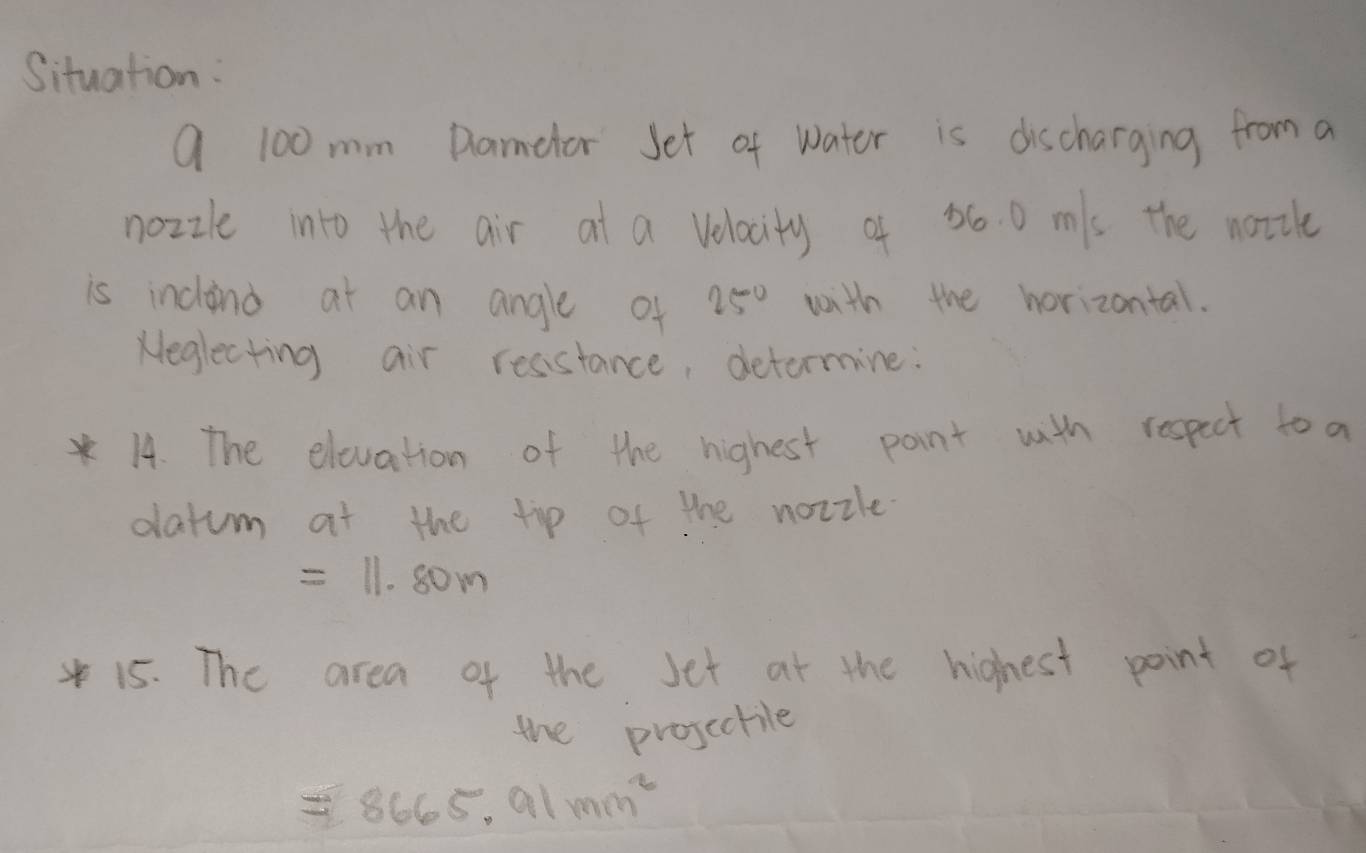 Situation:
A 100 mm Diameter Jet of Water is discharging from a
nozzle into the air at a Velocity of 36.0 m/s the nozzle
is at an angle of 25° with the horizontal.
Neglecting air resistance, determine:
* 14. The elevation of the highest point with respect to a
datum at the tip of the nozzle.
= 11.80m
* 15. The area of the Jet at the highest point of
the projectile
= 8665.91mm²